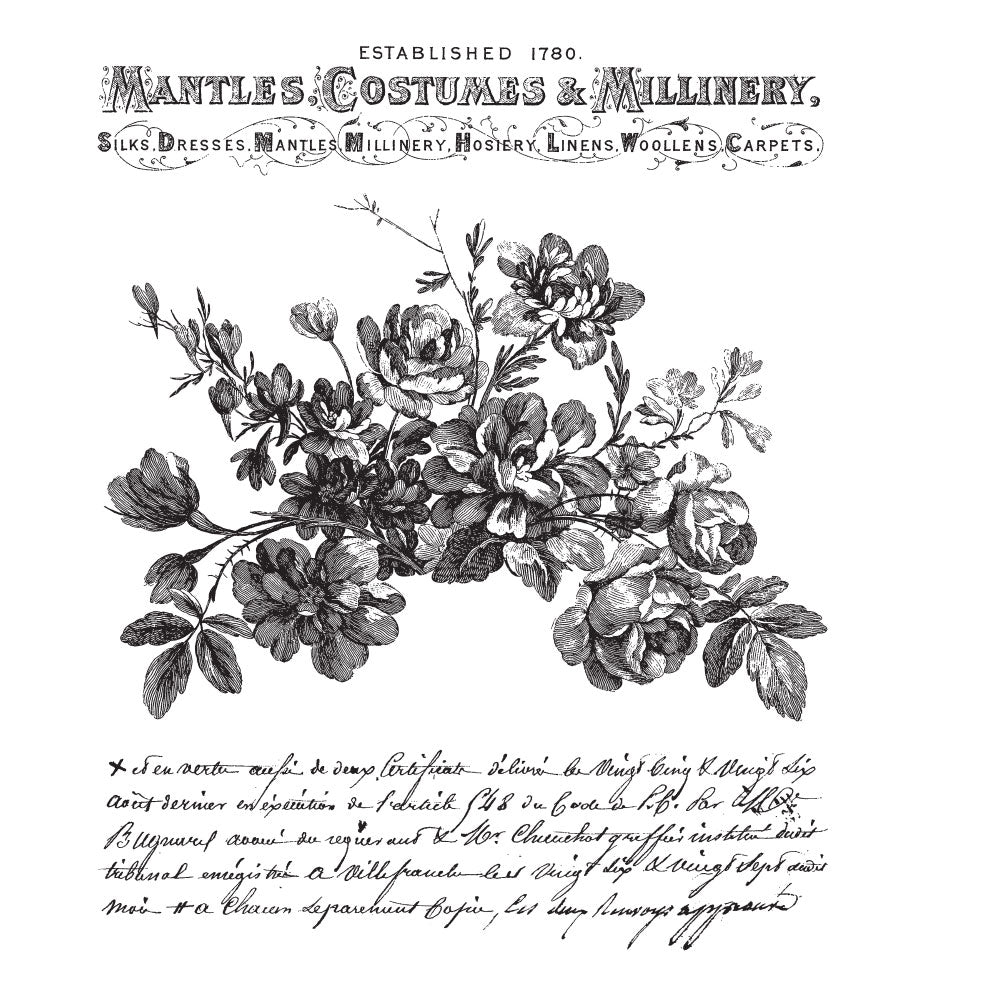 ESTABLISHED 1780.
MANTLES, COSTUMES & MILLINERY,
SILKS, DRESSES, MANTLES, MILLINERY, HOSIERY, LINENS, WOOLLENS, CARPETS.
et en vertu aussi de deux Certificats délivrés les Vingt Cinq & Vingt Six
août dernier en exécution de l'article 548 du Code de
avoué du requérant & Mr. greffier institué dudit
tribunal enrégistrés a Villefranche les Vingt Six & Vingt Sept dudit
mois # a Chacun séparement Copie, les deux Renvoys